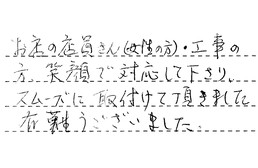 お店の店員さん(女性の方)・工事の
方、笑顔で対応して下さり、
スムーズに取付けて頂きました
有難うございました。